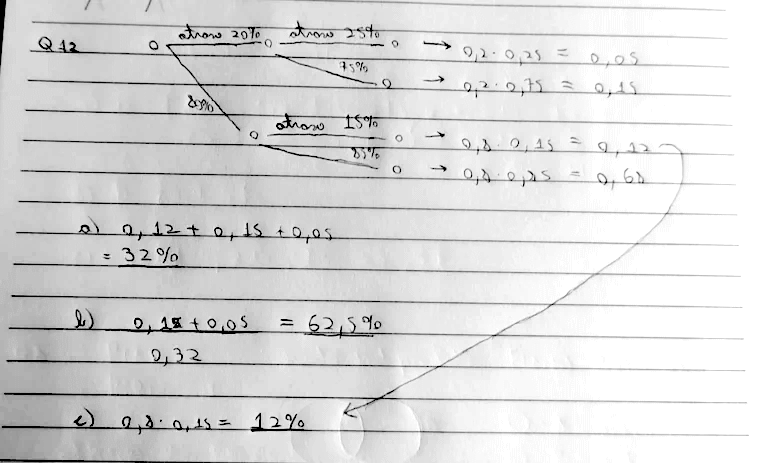 Q 12 atraso 20% atraso 25% → 0,2 · 0,25 = 0,05
75% → 0,2 · 0,75 = 0,15
80%
atraso 15% → 0,8 · 0,15 = 0,12
85% → 0,8 · 0,85 = 0,68
a) 0,12 + 0,15 + 0,05
= 32%
b) 0,15 + 0,05 = 62,5%
0,32
c) 0,8 · 0,15 = 12%